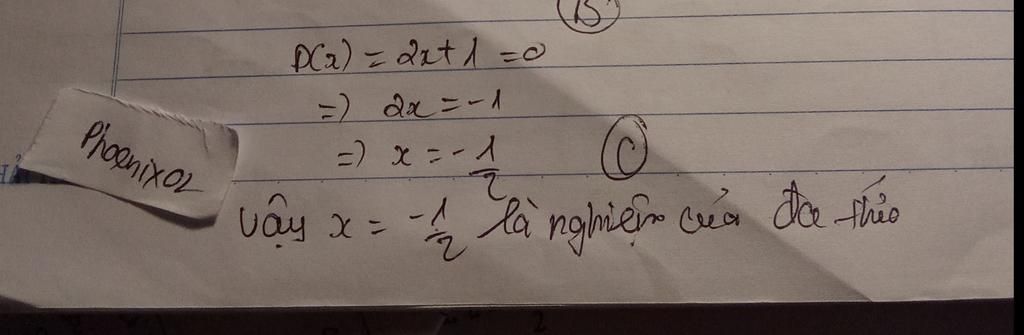 B
P(x) = 2x + 1 = 0
=> 2x = -1
=> x = -1/2 C
Phoenix02
Vậy x = -1/2 là nghiệm của đa thức